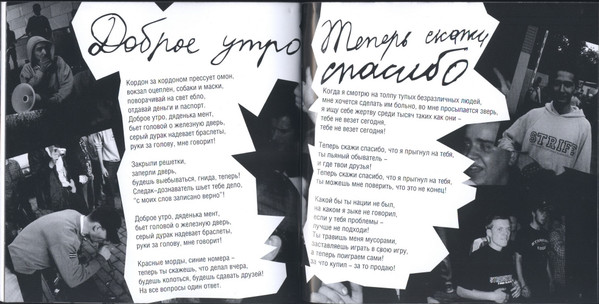 Доброе утро
Кордон за кордоном прессует омон,
вокзал оцеплен, собаки и маски,
поворачивай на свет ебло,
отдавай деньги и паспорт.
Доброе утро, дяденька мент,
бьет головой о железную дверь,
серый дурак надевает браслеты,
руки за голову, мне говорит!
Закрыли решетки,
заперли дверь,
будешь выебываться, гнида, теперь!
Следак-дознаватель шьет тебе дело,
"с моих слов записано верно"!
Доброе утро, дяденька мент,
бьет головой о железную дверь,
серый дурак надевает браслеты,
руки за голову, мне говорит!
Красные морды, синие номера –
теперь ты скажешь, что делал вчера,
будешь колоться, будешь сдавать друзей!
На все вопросы один ответ.
Теперь скажи
спасибо
Когда я смотрю на толпу тупых безразличных людей,
мне хочется сделать им больно, во мне просыпается зверь,
я ищу себе жертву среди тысяч таких как они –
тебе не везет сегодня,
тебе не везет сегодня!
Теперь скажи спасибо, что я прыгнул на тебя,
ты пьяный обыватель –
и где твои друзья!
Теперь скажи спасибо, что я прыгнул на тебя,
ты можешь мне поверить, что это не конец!
Какой бы ты нации не был,
на каком я зыке не говорил,
если у тебя проблемы –
лучше не подходи!
Ты травишь меня мусорами,
заставляешь играть в свою игру,
а теперь поиграем сами!
за что купил – за то продаю!
STRIFE